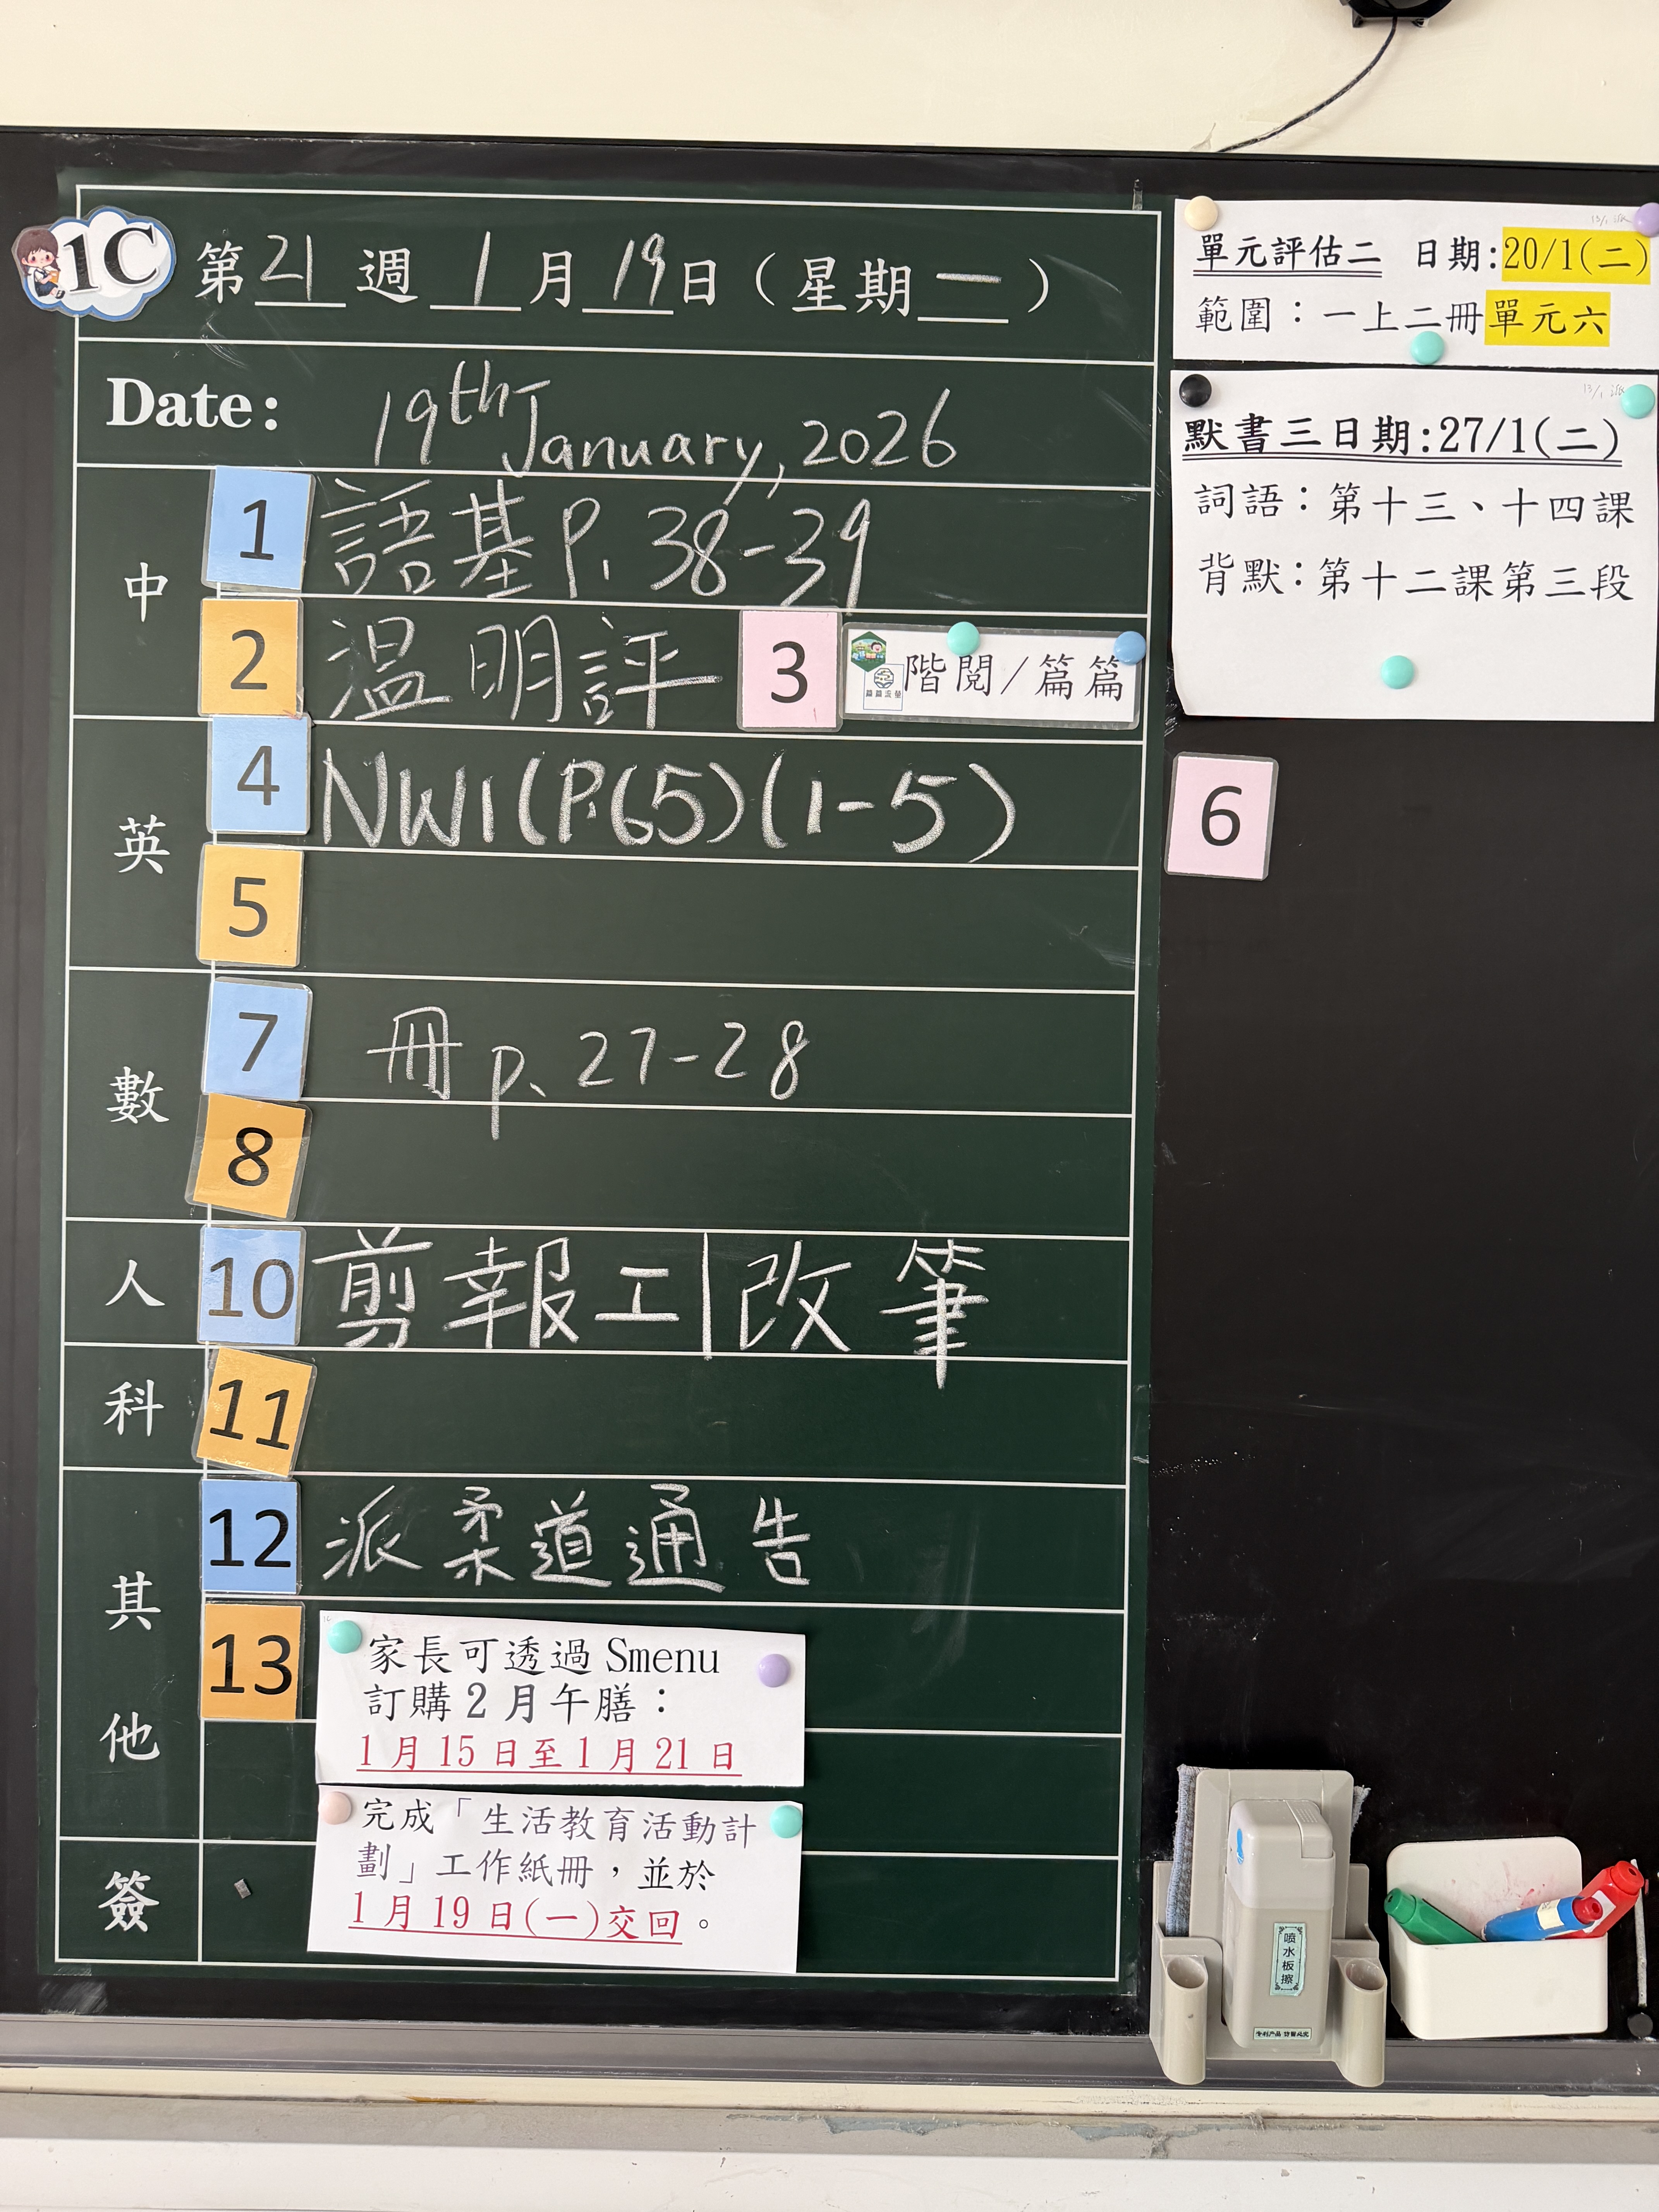 1C
第 21 週 1 月 19 日（星期 一 ）
Date: 19th January, 2026
中
1 語基 P. 38-39
2 溫明評 3 階閱/篇篇
英
4 NW1(P.65)(1-5)
6
5
數
7 冊 p. 27-28
8
人
10 剪報工|改筆
科
11
其他
12 派柔道通告
13 家長可透過 Smenu
訂購 2 月午膳：
1 月 15 日至 1 月 21 日
完成「生活教育活動計
劃」工作紙冊，並於
1 月 19 日(一)交回。
簽
單元評估二 日期:20/1(二)
範圍：一上二冊單元六
默書三日期:27/1(二)
詞語：第十三、十四課
背默：第十二課第三段
喷水板擦